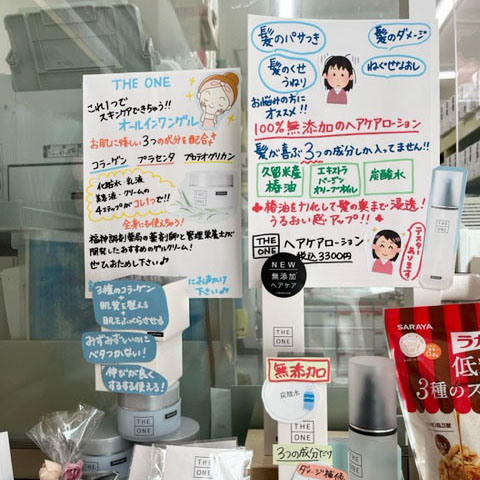 THE ONE
これ1つで
スキンケアできちゃう!!
オールインワンゲル
お肌に嬉しい3つの成分を配合
コラーゲン プラセンタ プロテオグリカン
化粧水・乳液
美容液・クリームの
4ステップがコレ1つで!!
全身にも使えちゃう!
福神調剤薬局の薬剤師と管理栄養士が
開発したおすすめのゲルクリーム!
ぜひお試し下さい♪
にお声かけ
下さい♪
3種のコラーゲン
+
肌質を整える
+
肌をふっくらさせる
みずみずしいのに
ベタつかない!
伸びが良く
するする使える!
THE
ONE
髪のパサつき
髪のダメージ
髪のくせ
うねり
ねぐせなおし
お悩みの方に
オススメ!!
100%無添加のヘアケアローション
髪が喜ぶ3つの成分しか入ってません!!
久留米産
椿油
エキストラ
バージン
オリーブオイル
炭酸水
椿油をナノ化して髪の奥まで浸透!
うるおい感アップ!!
THE
ONE
ヘアケアローション
税込3300円
テスター
あります
NEW
無添加
ヘアケア
THE
ONE
無添加
炭酸水
3つの成分だけ
ダメージ補修
THE
ONE
THE
ONE
SARAYA
ラカ
低
3種のス